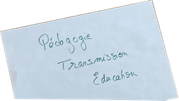 Pédagogie
Transmission
Education